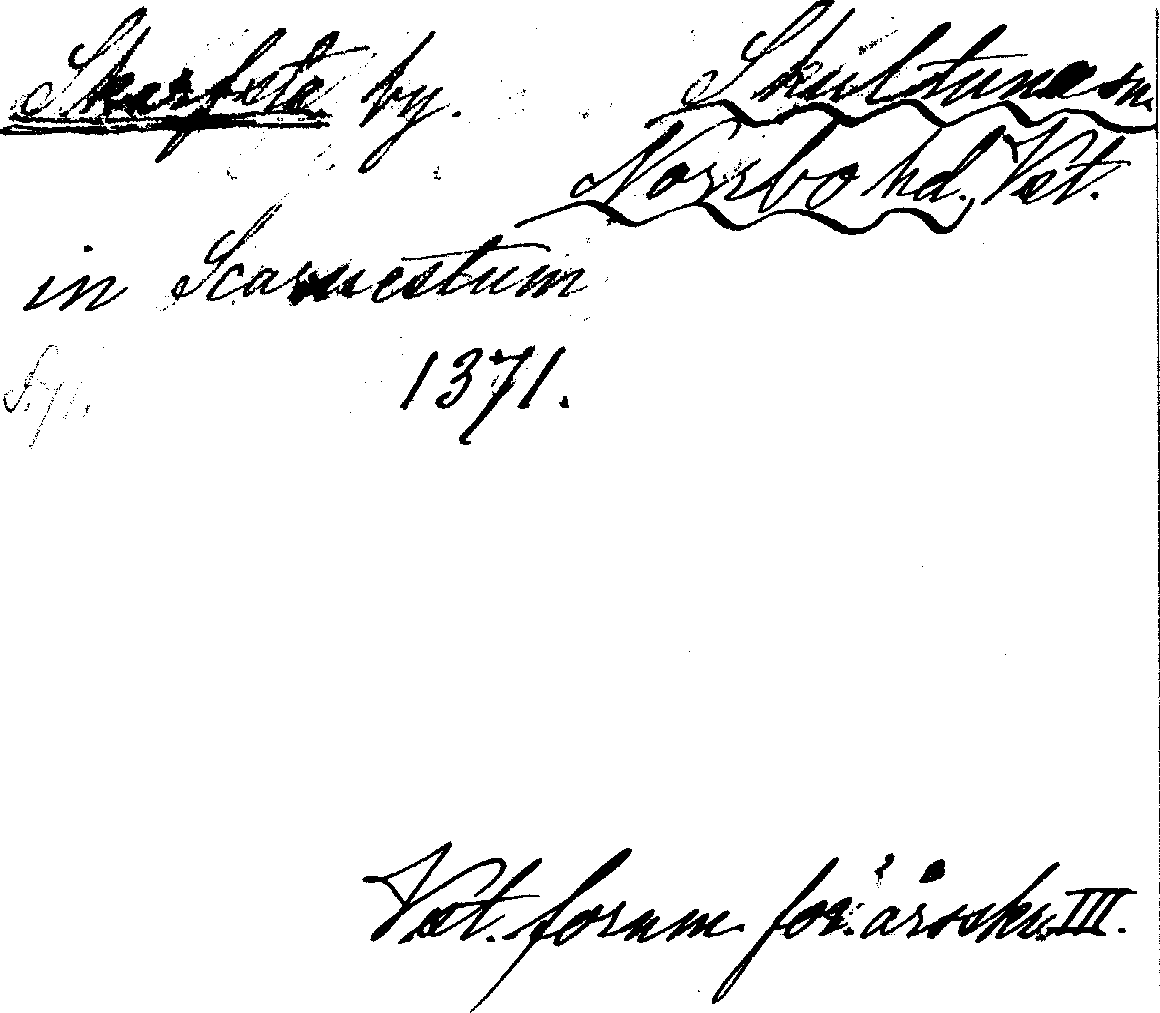 Skarfsta by. Skultuna sn.
Norrbo hd. Vst.
in Scaruestum
1371.
Vst. fornm. för. årsskr. III.